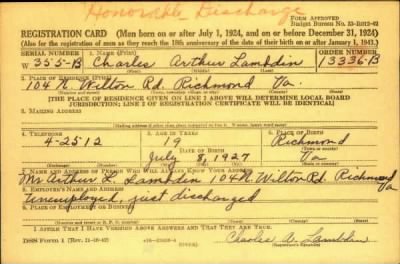 Honorable Discharge
FORM APPROVED
Budget Bureau No. 33-R012-42
REGISTRATION CARD (Men born on or after July 1, 1924, and on or before December 31, 1924)
(Also for the registration of men as they reach the 18th anniversary of the date of their birth on or after January 1, 1943.)
SERIAL NUMBER 1. NAME (Print) ORDER NUMBER
W 355-B Charles Arthur Lambdin 13336-B
(First) (Middle) (Last)
2. PLACE OF RESIDENCE (Print)
104 N. Wilton Rd. Richmond Va.
[THE PLACE OF RESIDENCE GIVEN ON LINE 2 ABOVE WILL DETERMINE LOCAL BOARD
JURISDICTION; LINE 2 OF REGISTRATION CERTIFICATE WILL BE IDENTICAL]
3. MAILING ADDRESS
4. TELEPHONE 5. AGE IN YEARS 6. PLACE OF BIRTH
4-2512 19 Richmond
DATE OF BIRTH
July 8, 1927 Va
7. NAME AND ADDRESS OF PERSON WHO WILL ALWAYS KNOW YOUR ADDRESS
Mr Arthur L. Lambdin 104 N. Wilton Rd. Richmond Va
8. EMPLOYER'S NAME AND ADDRESS
Unemployed, just discharged
9. PLACE OF EMPLOYMENT OR BUSINESS
I AFFIRM THAT I HAVE VERIFIED ABOVE ANSWERS AND THAT THEY ARE TRUE.
DSS Form 1 (Rev. 11-16-42) (OVER) Charles A. Lambdin
(Registrant's Signature)